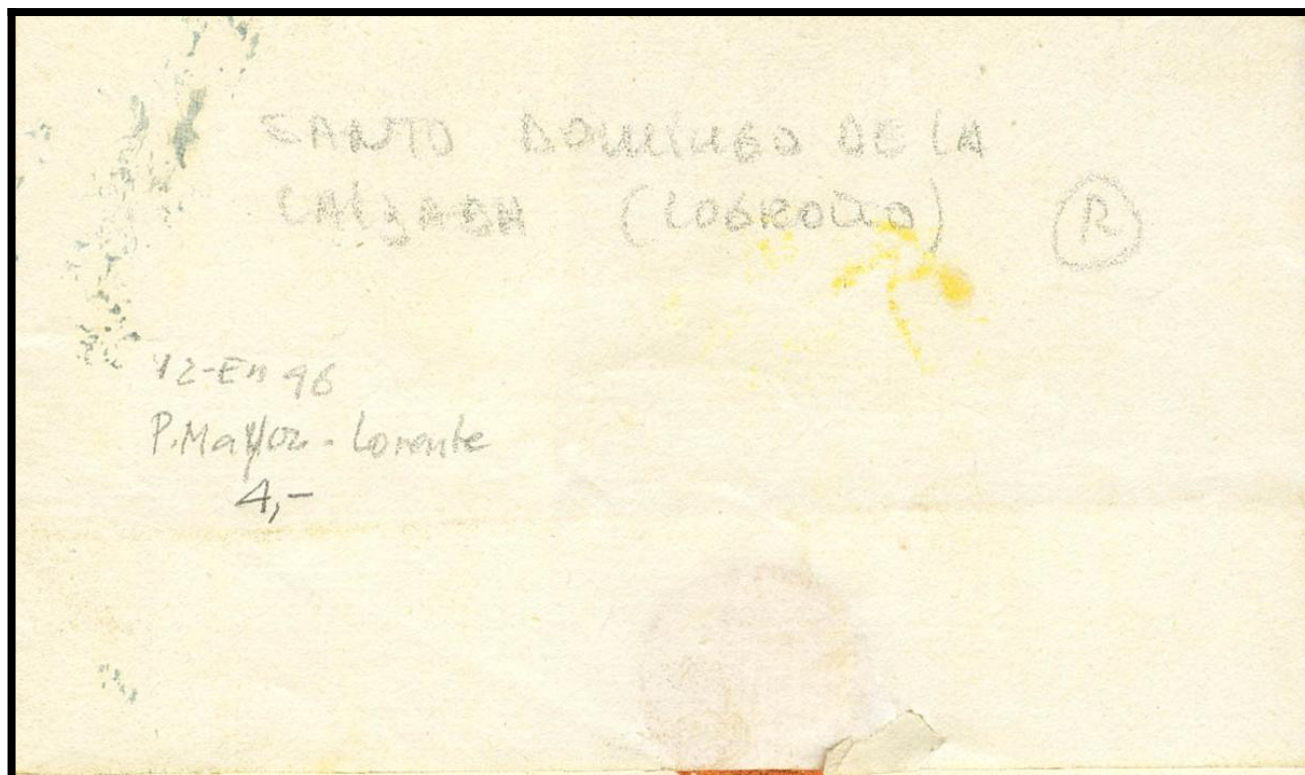 SANTO DOMINGO DE LA
CALZADA (LOGROÑO) R
12-En 96
P.Mayor - Lorente
4,-